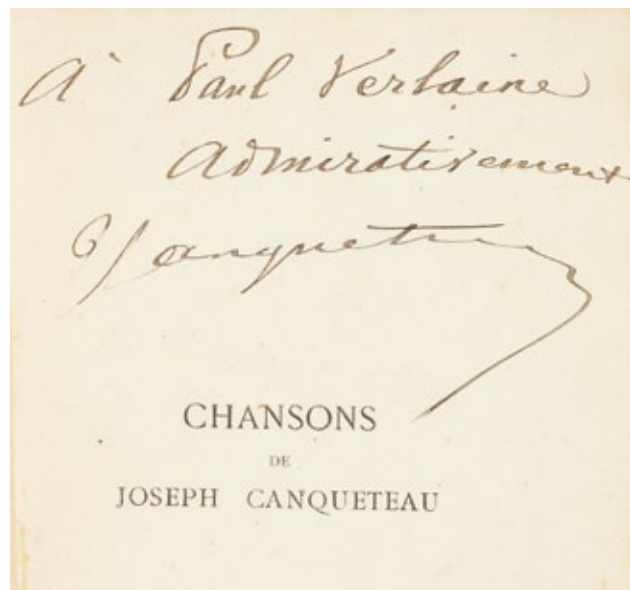 À Paul Verlaine
Admirativement
J Canqueteau
CHANSONS
DE
JOSEPH CANQUETEAU